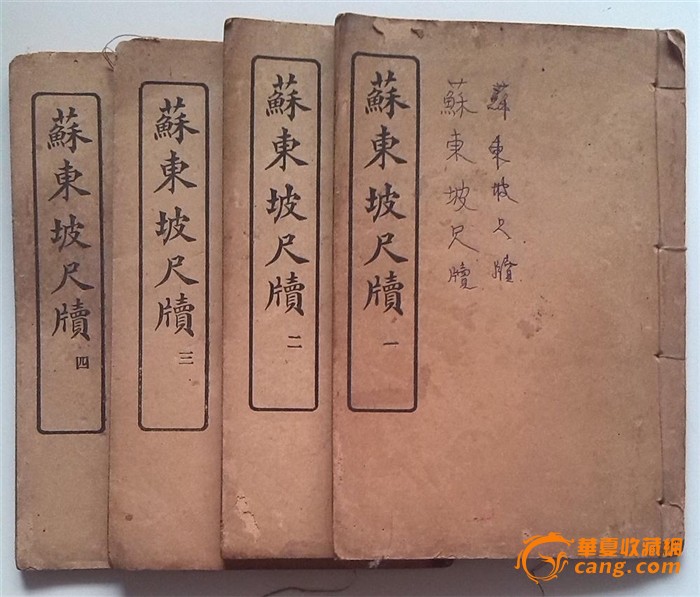 蘇東坡尺牘 一
蘇東坡尺牘
蘇東坡尺牘
蘇東坡尺牘 二
蘇東坡尺牘 三
蘇東坡尺牘 四
華夏收藏網
cang.com